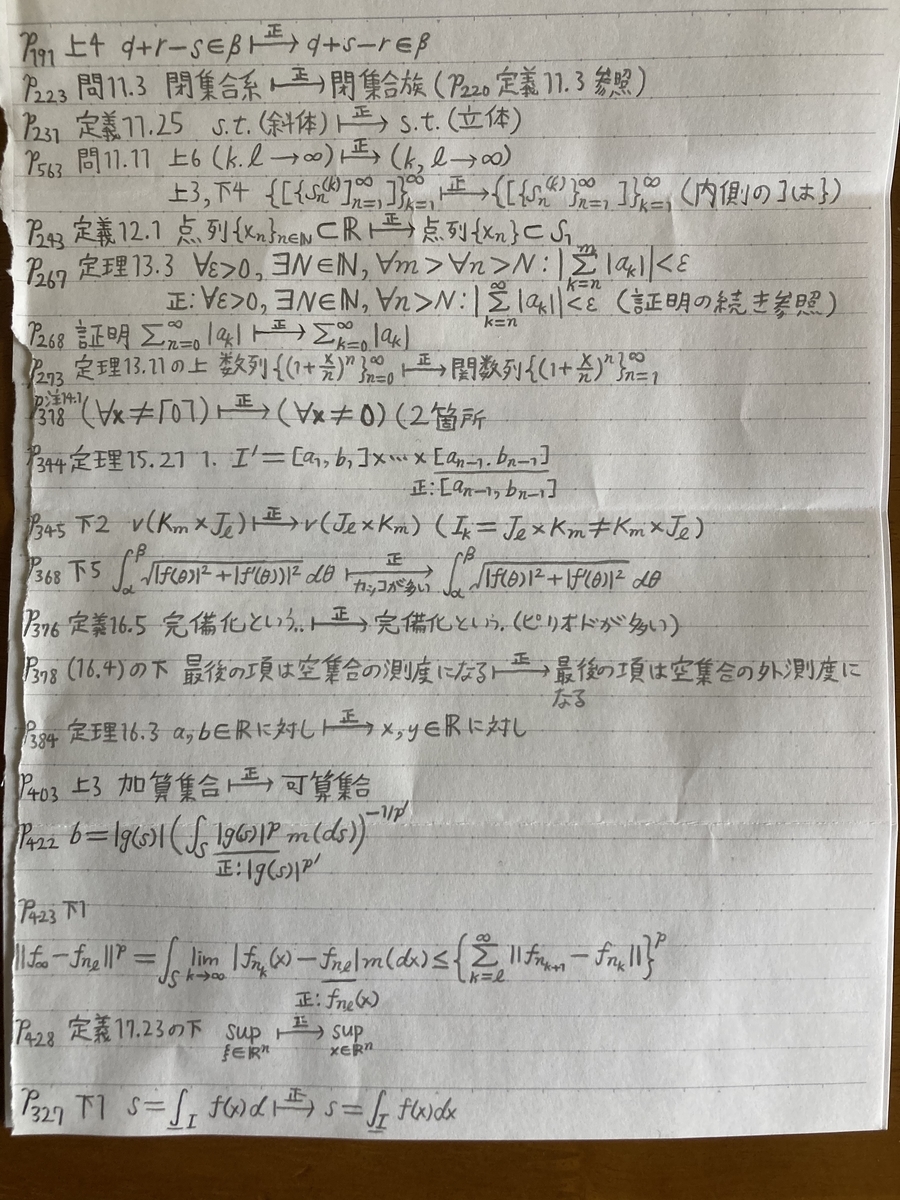 P191 上4 q+r−s∈β ⊢正→ q+s−r∈β
P223 問11.3 閉集合系 ⊢正→ 閉集合族 (P220 定義11.3 参照)
P231 定義11.25 s.t.(斜体) ⊢正→ s.t.(立体)
P563 問11.11 上6 (k.l→∞) ⊢正→ (k, l→∞)
上3,下4 {[{s_n^(k)]_{n=1}^∞]}_{k=1}^∞ ⊢正→ {[{s_n^(k)}_{n=1}^∞]}_{k=1}^∞ (内側の ] は })
P243 定義12.1 点列{x_n}_{n∈ℕ}⊂ℝ ⊢正→ 点列{x_n}⊂S_1
P267 定理13.3 ∀ε>0, ∃N∈ℕ, ∀m>∀n>N:|∑_{k=n}^m |a_k||<ε
正:∀ε>0, ∃N∈ℕ, ∀n>N:|∑_{k=n}^∞ |a_k||<ε (証明の続き参照)
P268 証明 ∑_{n=0}^∞ |a_k| ⊢正→ ∑_{k=0}^∞ |a_k|
P273 定理13.11の上 数列{(1+x/n)^n}_{n=0}^∞ ⊢正→ 関数列{(1+x/n)^n}_{n=1}^∞
P318 注14.1 (∀x≠「0「) ⊢正→ (∀x≠0) (2箇所
P344 定理15.21 1. I'=[a_1,b,]×…×[a_{n-1}.b_{n-1}]
正:[a_{n-1},b_{n-1}]
P345 下2 v(K_m×J_l) ⊢正→ v(J_l×K_m) (I_k=J_l×K_m≠K_m×J_l)
P368 下5 ∫_α^β √|f(θ)|²+|f'(θ))|² dθ ⊢正→ カッコが多い ∫_α^β √|f(θ)|²+|f'(θ)|² dθ
P376 定義16.5 完備化という.. ⊢正→ 完備化という. (ピリオドが多い)
P378 (16.4)の下 最後の項は空集合の測度になる ⊢正→ 最後の項は空集合の外測度に
なる
P384 定理16.3 a,b∈ℝに対し ⊢正→ x,y∈ℝに対し
P403 上3 加算集合 ⊢正→ 可算集合
P422 b=|g(s)|(∫_S |g(s)|^p m(ds))^{-1/p'}
正:|g(s)|^{p'}
P423 下1
||f_∞−f_{n_l}||^p=∫_S lim_{k→∞} |f_{n_k}(x)−f_{n_l}|m(dx)≤{∑_{k=l}^∞ ||f_{n_{k+1}}−f_{n_k}||}^p
正:f_{n_l}(x)
P428 定義17.23の下 sup_{ξ∈ℝ^n} ⊢正→ sup_{x∈ℝ^n}
P327 下1 s=∫_I f(x)d ⊢正→ s=∫_I f(x)dx